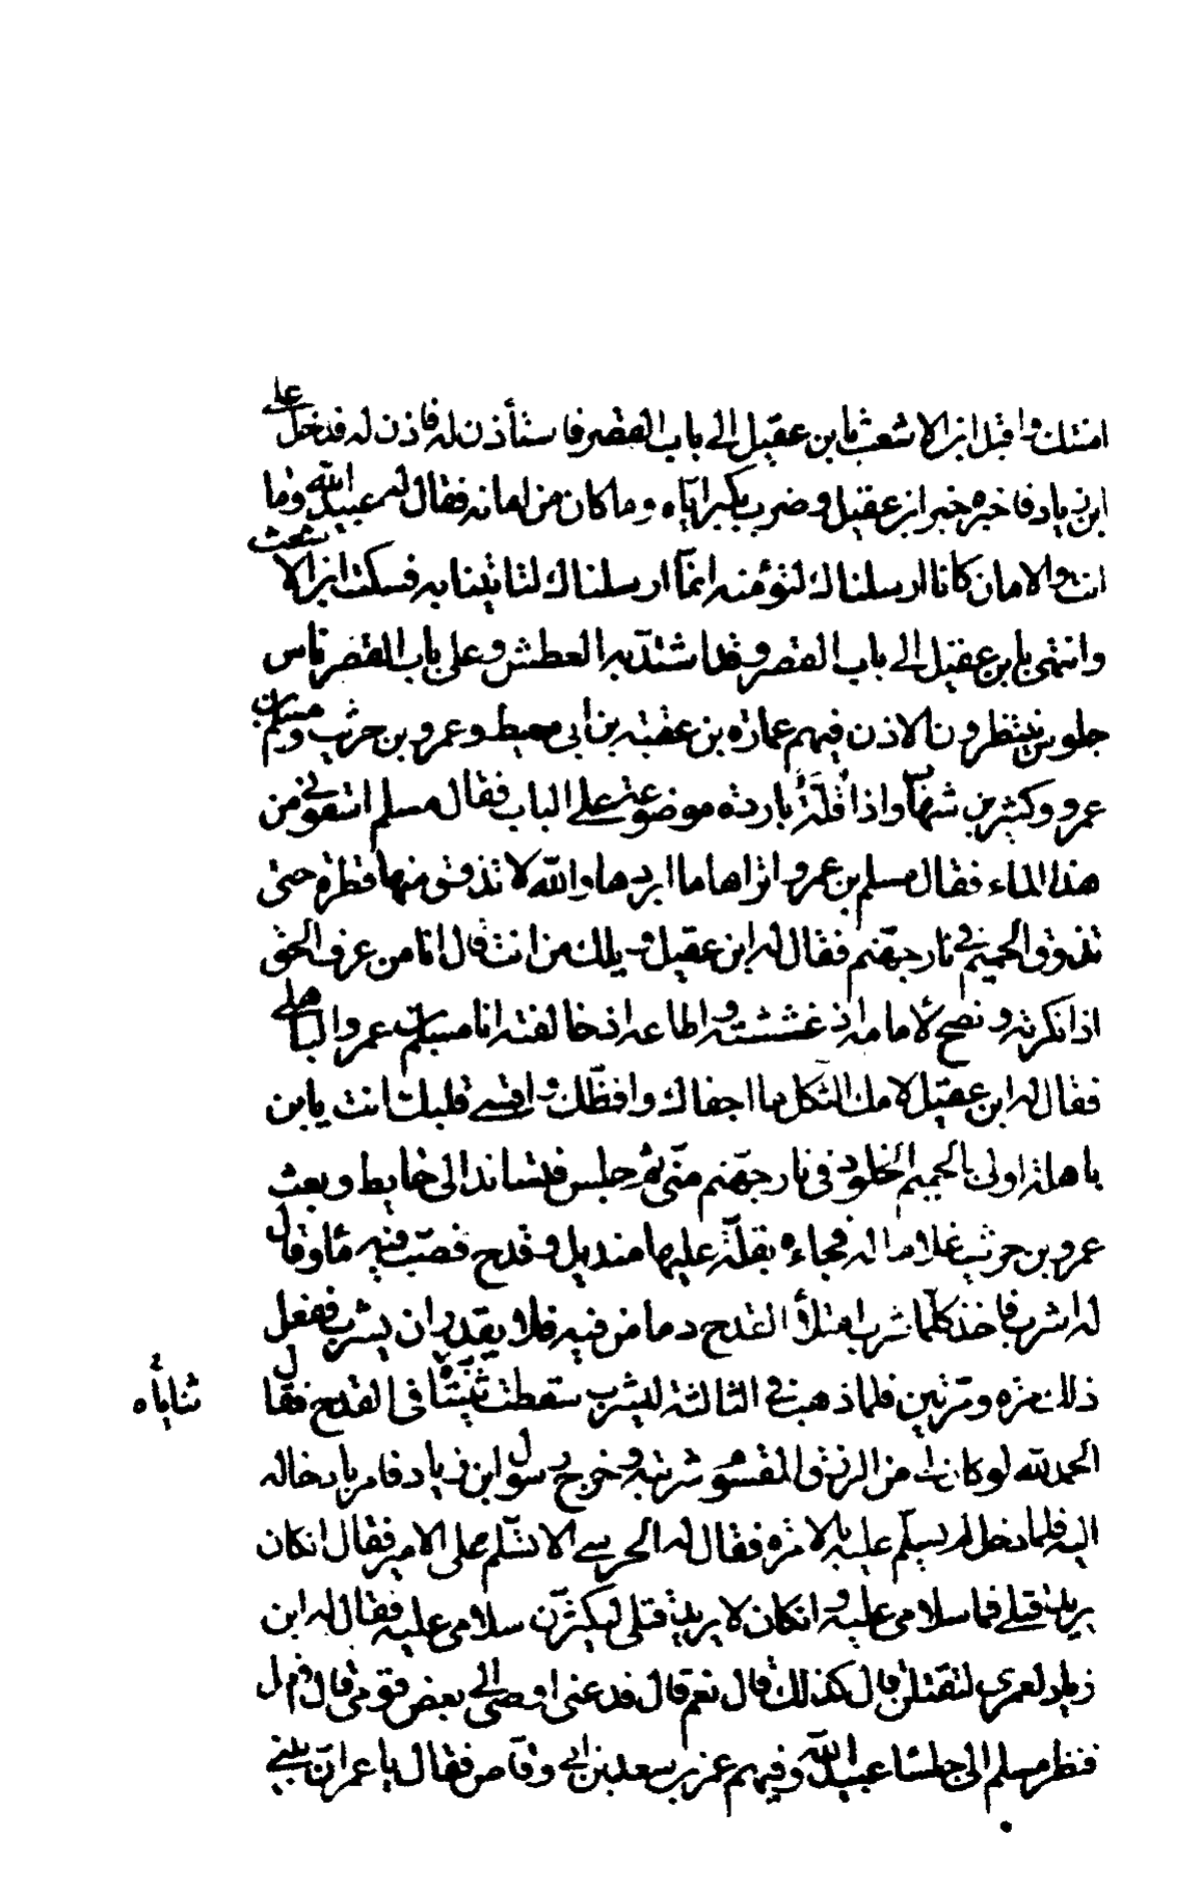 امنتك واقبل ابن الاشعث بابن عقيل الى باب القصر فاستأذن له فاذن له فدخل على
ابن زياد فاخبره خبر ابن عقيل وضرب بكير اياه وما كان من امانه فقال له عبيد الله وما
انت والامان كانا ارسلناك لتؤمنه انما ارسلناك لتاتينا به فسكت ابن الاشعث
وانتهى بابن عقيل الى باب القصر وقد اشتد به العطش وعلى باب القصر ناس
جلوس ينتظرون الاذن فيهم عمارة بن عقبة بن ابى معيط وعمرو بن حريث ومسلم بن
عمرو وكثير بن شهاب واذا قلة باردة موضوعة على الباب فقال مسلم اسقونى من
هذا الماء فقال مسلم بن عمرو اتراها ما ابردها والله لا تذوق منها قطرة حتى
تذوق الحميم فى نار جهنم فقال له ابن عقيل ويلك من انت قال انا من عرف الحق
اذ انكرته ونصح لأمامه اذ غششته واطاعه اذ خالفته انا مسلم بن عمرو الباهلى
فقال له ابن عقيل لامك الثكل ما اجفاك وافظك واقسى قلبك انت يا بن
باهلة اولى بالحميم والخلود فى نار جهنم منى ثم جلس فتساند الى حايط وبعث
عمرو بن حريث غلاما له فجاءه بقلة عليها منديل وقدح فصب فيه ماء وقال
له اشرب فاخذ كلما شرب امتلأ القدح دما من فيه فلا يقدر ان يشرب ففعل
ذلك مرة ومرتين فلما ذهب فى الثالثة ليشرب سقطت ثنيتاه فى القدح فقال
ثناياه
الحمد لله لو كان لى من الرزق المقسوم شربته وخرج رسول ابن زياد فامر بادخاله
اليه فلما دخل لم يسلم عليه بالامرة فقال له الحرسى الا تسلم على الامير فقال ان كان
يريد قتلى فما سلامى عليه وان كان لا يريد قتلى ليكثرن سلامى عليه فقال له ابن
زياد لعمرى لتقتلن قال كذلك قال نعم قال فدعنى اوصى الى بعض قومى قال
فنظر مسلم الى جلساء عبيد الله وفيهم عمر بن سعد بن ابى وقاص فقال يا عمر ان بينى